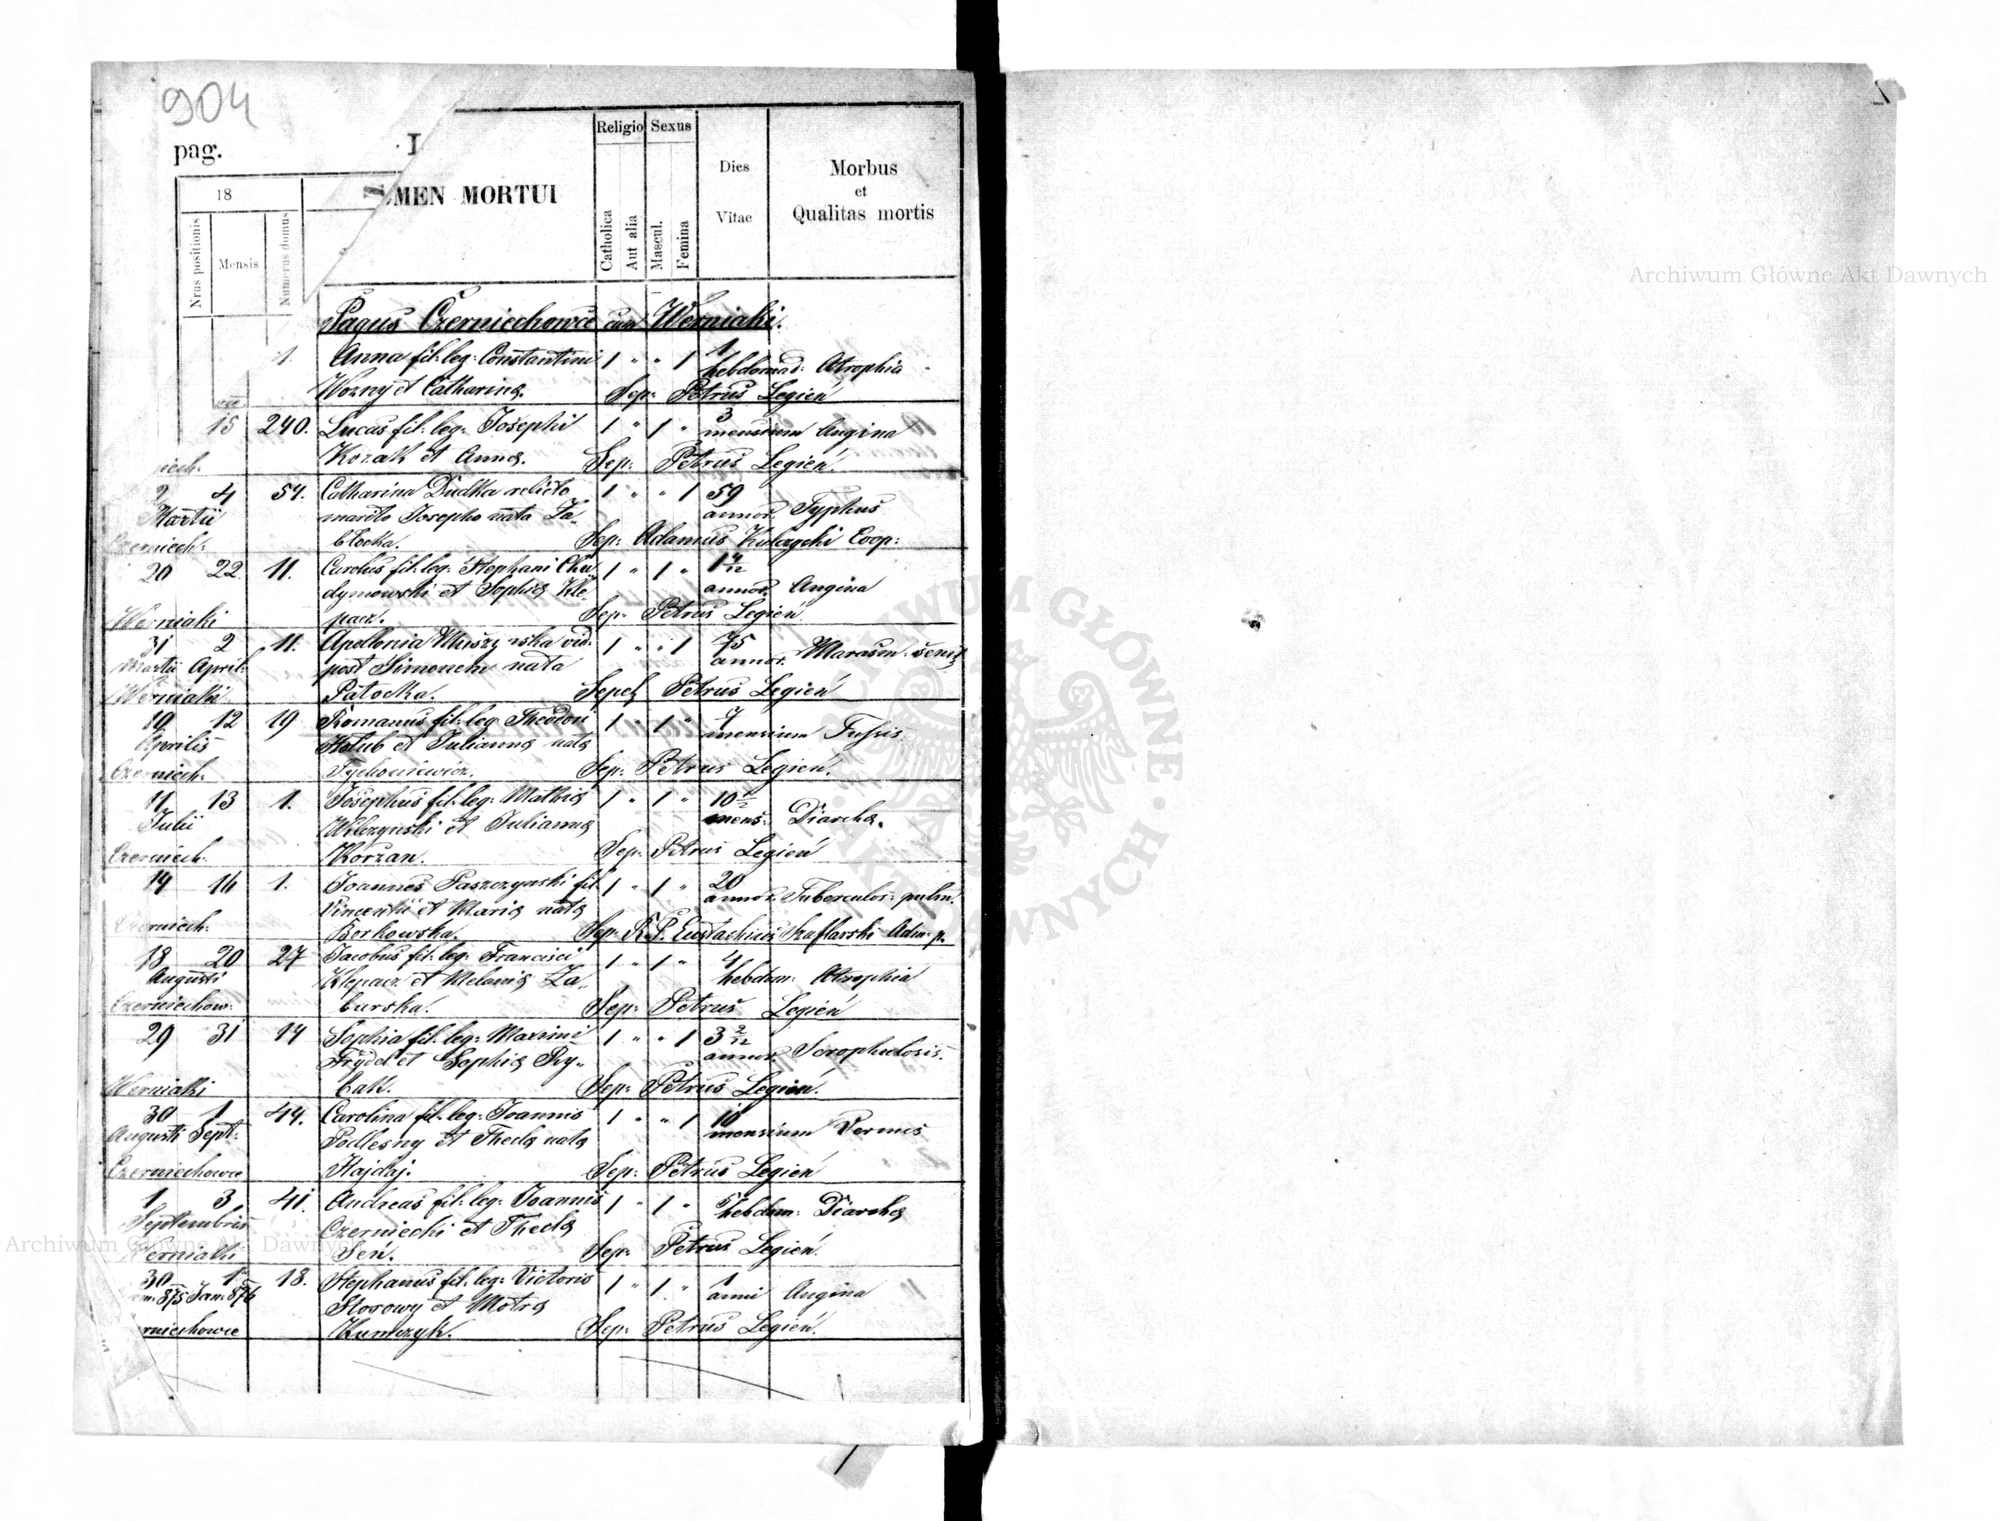 904
pag. I
18
MEN MORTUI
Religio Sexus
Nrus positionis
Mensis
Numerus domus
Catholica
Aut alia
Mascul.
Femina
Dies
Vitae
Morbus
et
Qualitas mortis
Pagus Czerniechowce cum Werniaki.
1. Anna fil: leg: Constantini 1 " " 1 1
hebdomad: Atrophia
Wozny et Catharina. Sep: Petrus Legień
15 240. Lucas fil: leg: Josephi 1 " 1 " 3
mensium Angina
Kozak et Anna. Sep: Petrus Legień
iech.
2 4 54. Catharina Dudka relicto 1 " " 1 59
Martii marito Josepho nata Za- annor. Typhus
Czerniech: błocka. Sep: Adamus Coop:
20 22 11. Carolus fil: leg: Stephani Cha- 1 " 1 " 1 4/12
dymowski et Sophia Kle- annor. Angina
Werniaki pacz. Sep: Petrus Legień
31 2 11. Apolonia Muszyńska vid. 1 " " 1 75
Martii April: post Simonem nata annor. Marasm. senil
Werniaki Patocka. Sepel Petrus Legień
10 12 19 Romanus fil: leg: Theodori 1 " 1 " 7
Aprilis Holub et Julianna nata mensium Tussis
Czerniech. Tychoniewicz. Sep: Petrus Legień.
11 13 1. Josephus fil: leg: Mathia 1 " 1 " 10 1/2
Julii Wilczynski et Julianna mens: Diarhea.
Czerniech. Korzan. Sep: Petrus Legień
14 16 1. Joannes Paszczynski fil. 1 " 1 " 20
Vincentii et Maria nata annor. Tuberculos: pulm.
Czerniech. Borkowska. Sep: R.P. Eustachius Szaflarski Adm. p.
18 20 27 Jacobus fil: leg: Francisci 1 " 1 " 4
Augusti Klepacz et Melania Za- hebdom: Atrophia
Czerniechow: burska. Sep: Petrus Legień
29 31 14 Sophia fil: leg: Maximi 1 " " 1 3 2/12
Frydel et Sophia Ry- annor. Scrophulosis.
Werniaki bak. Sep: Petrus Legień.
30 1 44. Carolina fil: leg: Joannis 1 " " 1 10
Augusti Sept: Podlesny et Thecla nata mensium Vermes
Czerniechowce Hajdaj. Sep: Petrus Legień
1 3 41. Andreas fil: leg: Joannis 1 " 1 " 5
Septembris Czerniecki et Thecla hebdom: Diarhea
Werniaki Seń. Sep: Petrus Legień.
30 1 18. Stephanus fil: leg: Victoris 1 " 1 " 1
875 Jan: 876 Storowy et Motra anni Angina
rniechowce Kumczyk. Sep: Petrus Legień.
Archiwum Główne Akt Dawnych
Archiwum Główne Akt Dawnych
ARCHIWUM GŁÓWNE · AKT DAWNYCH ·